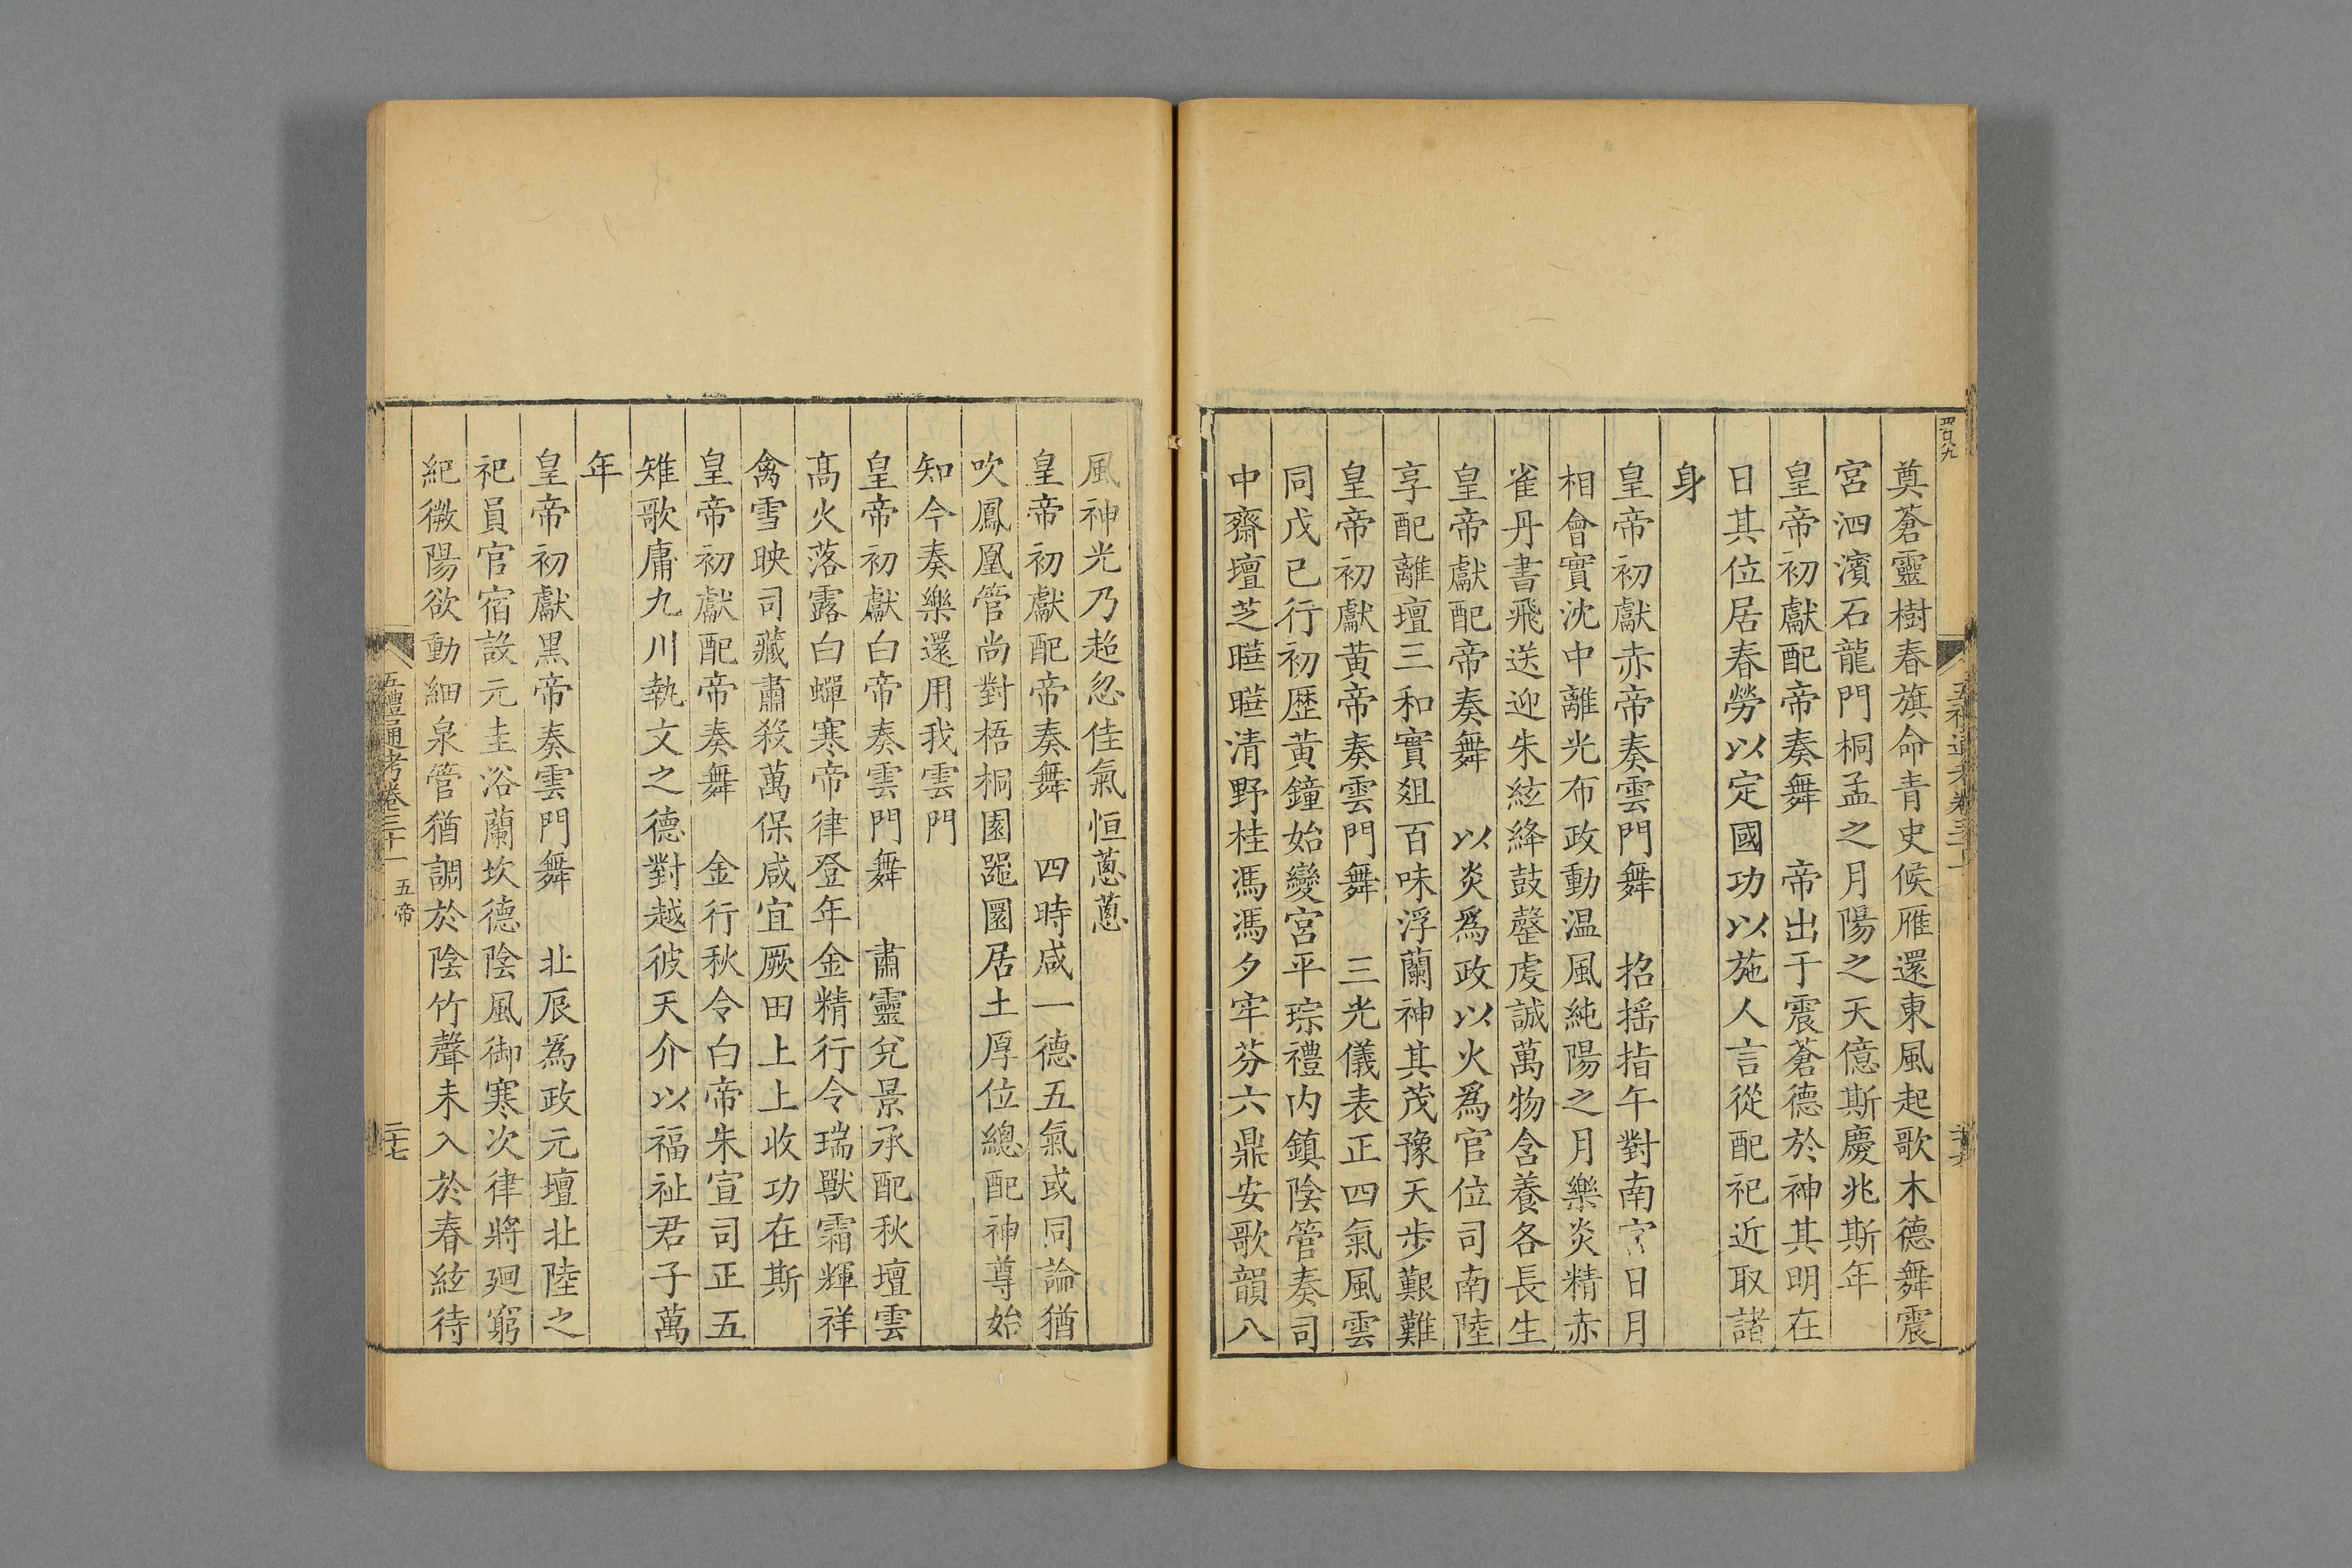 奠蒼靈樹春旗命青史候雁還東風起歌木德舞震
宮泗濱石龍門桐孟之月陽之天億斯慶兆斯年
皇帝初獻配帝奏舞　帝出于震蒼德於神其明在
日其位居春勞以定國功以施人言從配祀近取諸
身
皇帝初獻赤帝奏雲門舞　招搖指午對南宮日月
相會實沈中離光布政動温風純陽之月樂炎精赤
雀丹書飛送迎朱絃絳鼓罄虔誠萬物含養各長生
皇帝獻配帝奏舞　以炎爲政以火爲官位司南陸
享配離壇三和實俎百味浮蘭神其茂豫天步艱難
皇帝初獻黃帝奏雲門舞　三光儀表正四氣風雲
同戊己行初歷黃鐘始變宮平琮禮内鎮陰管奏司
中齋壇芝曀曀清野桂馮馮夕牢芬六鼎安歌韻八
風神光乃超忽佳氣恒蔥蔥
皇帝初獻配帝奏舞　四時咸一德五氣或同論猶
吹鳳凰管尚對梧桐園噐圜居土厚位總配神尊始
知今奏樂還用我雲門
皇帝初獻白帝奏雲門舞　肅靈兌景承配秋壇雲
高火落露白蟬寒帝律登年金精行令瑞獸霜輝祥
禽雪映司藏肅殺萬保咸宜厥田上上收功在斯
皇帝初獻配帝奏舞　金行秋令白帝朱宣司正五
雉歌庸九川執文之德對越彼天介以福祉君子萬
年
皇帝初獻黑帝奏雲門舞　北辰爲政元壇北陸之
祀員官宿設元圭浴蘭坎德陰風御寒次律將廻窮
紀微陽欲動細泉管猶調於陰竹聲未入於春絃待
五禮通考卷三十一　五帝　二十七